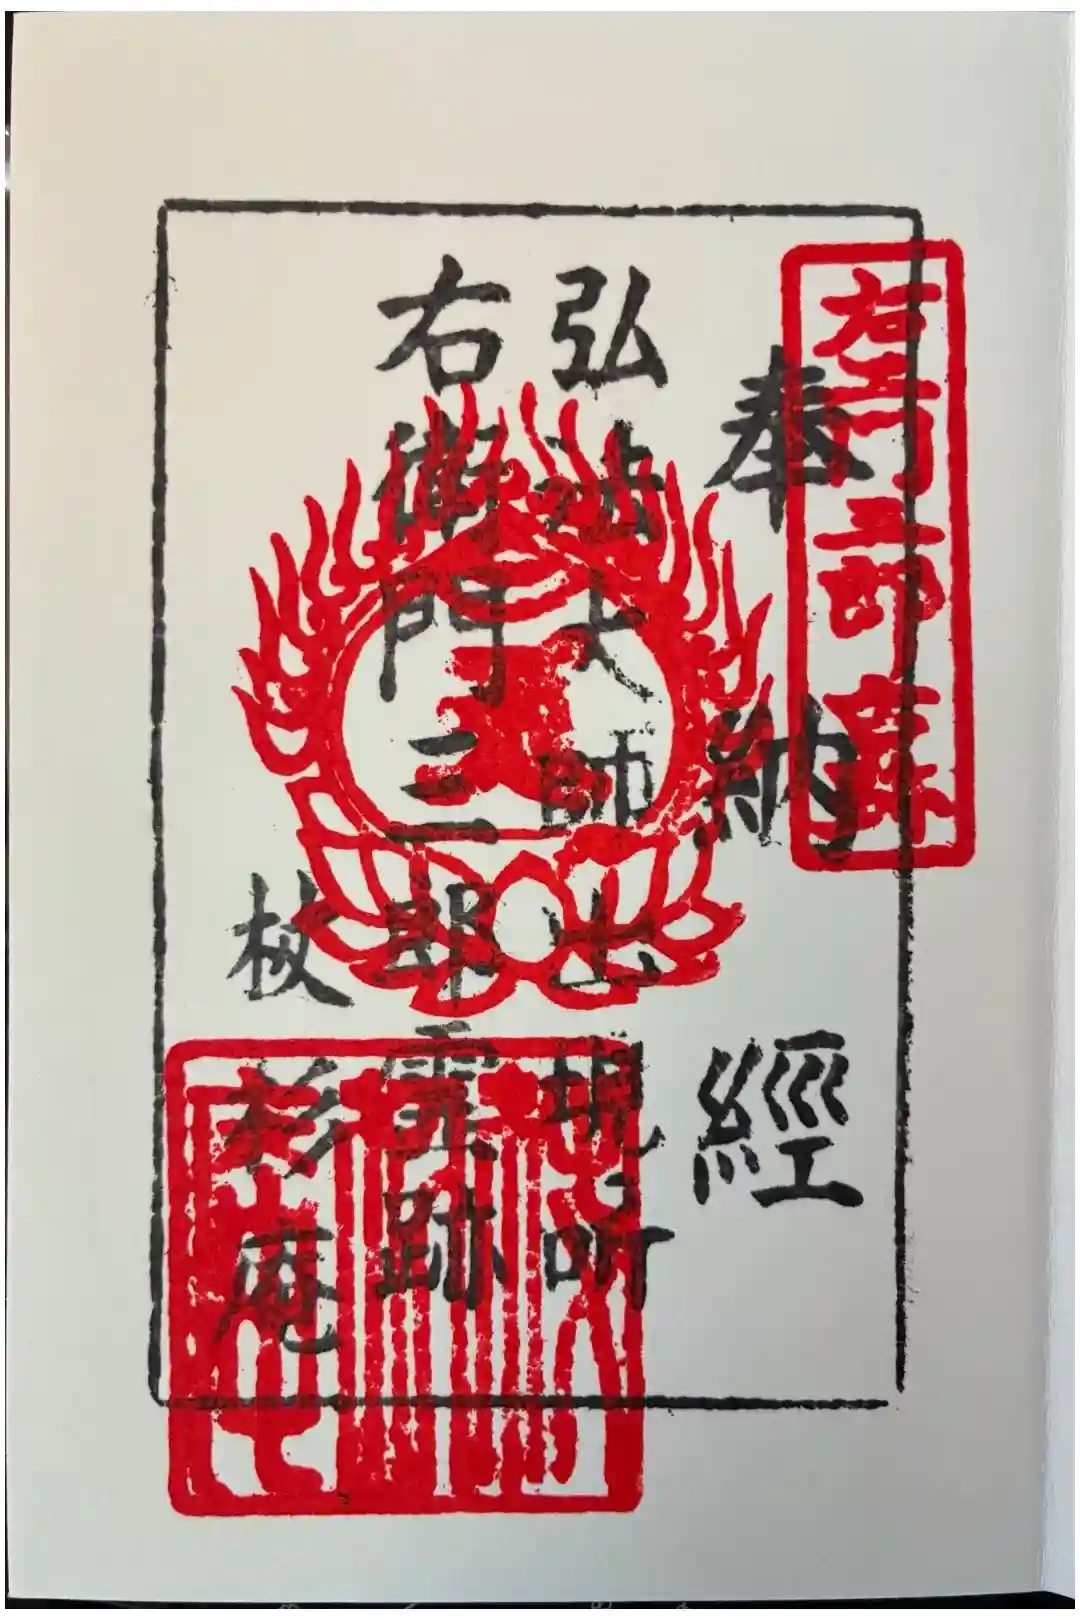 右エ門三郎
奉納經
弘法大師出現所
右衛門三郎霊跡
杖杉庵